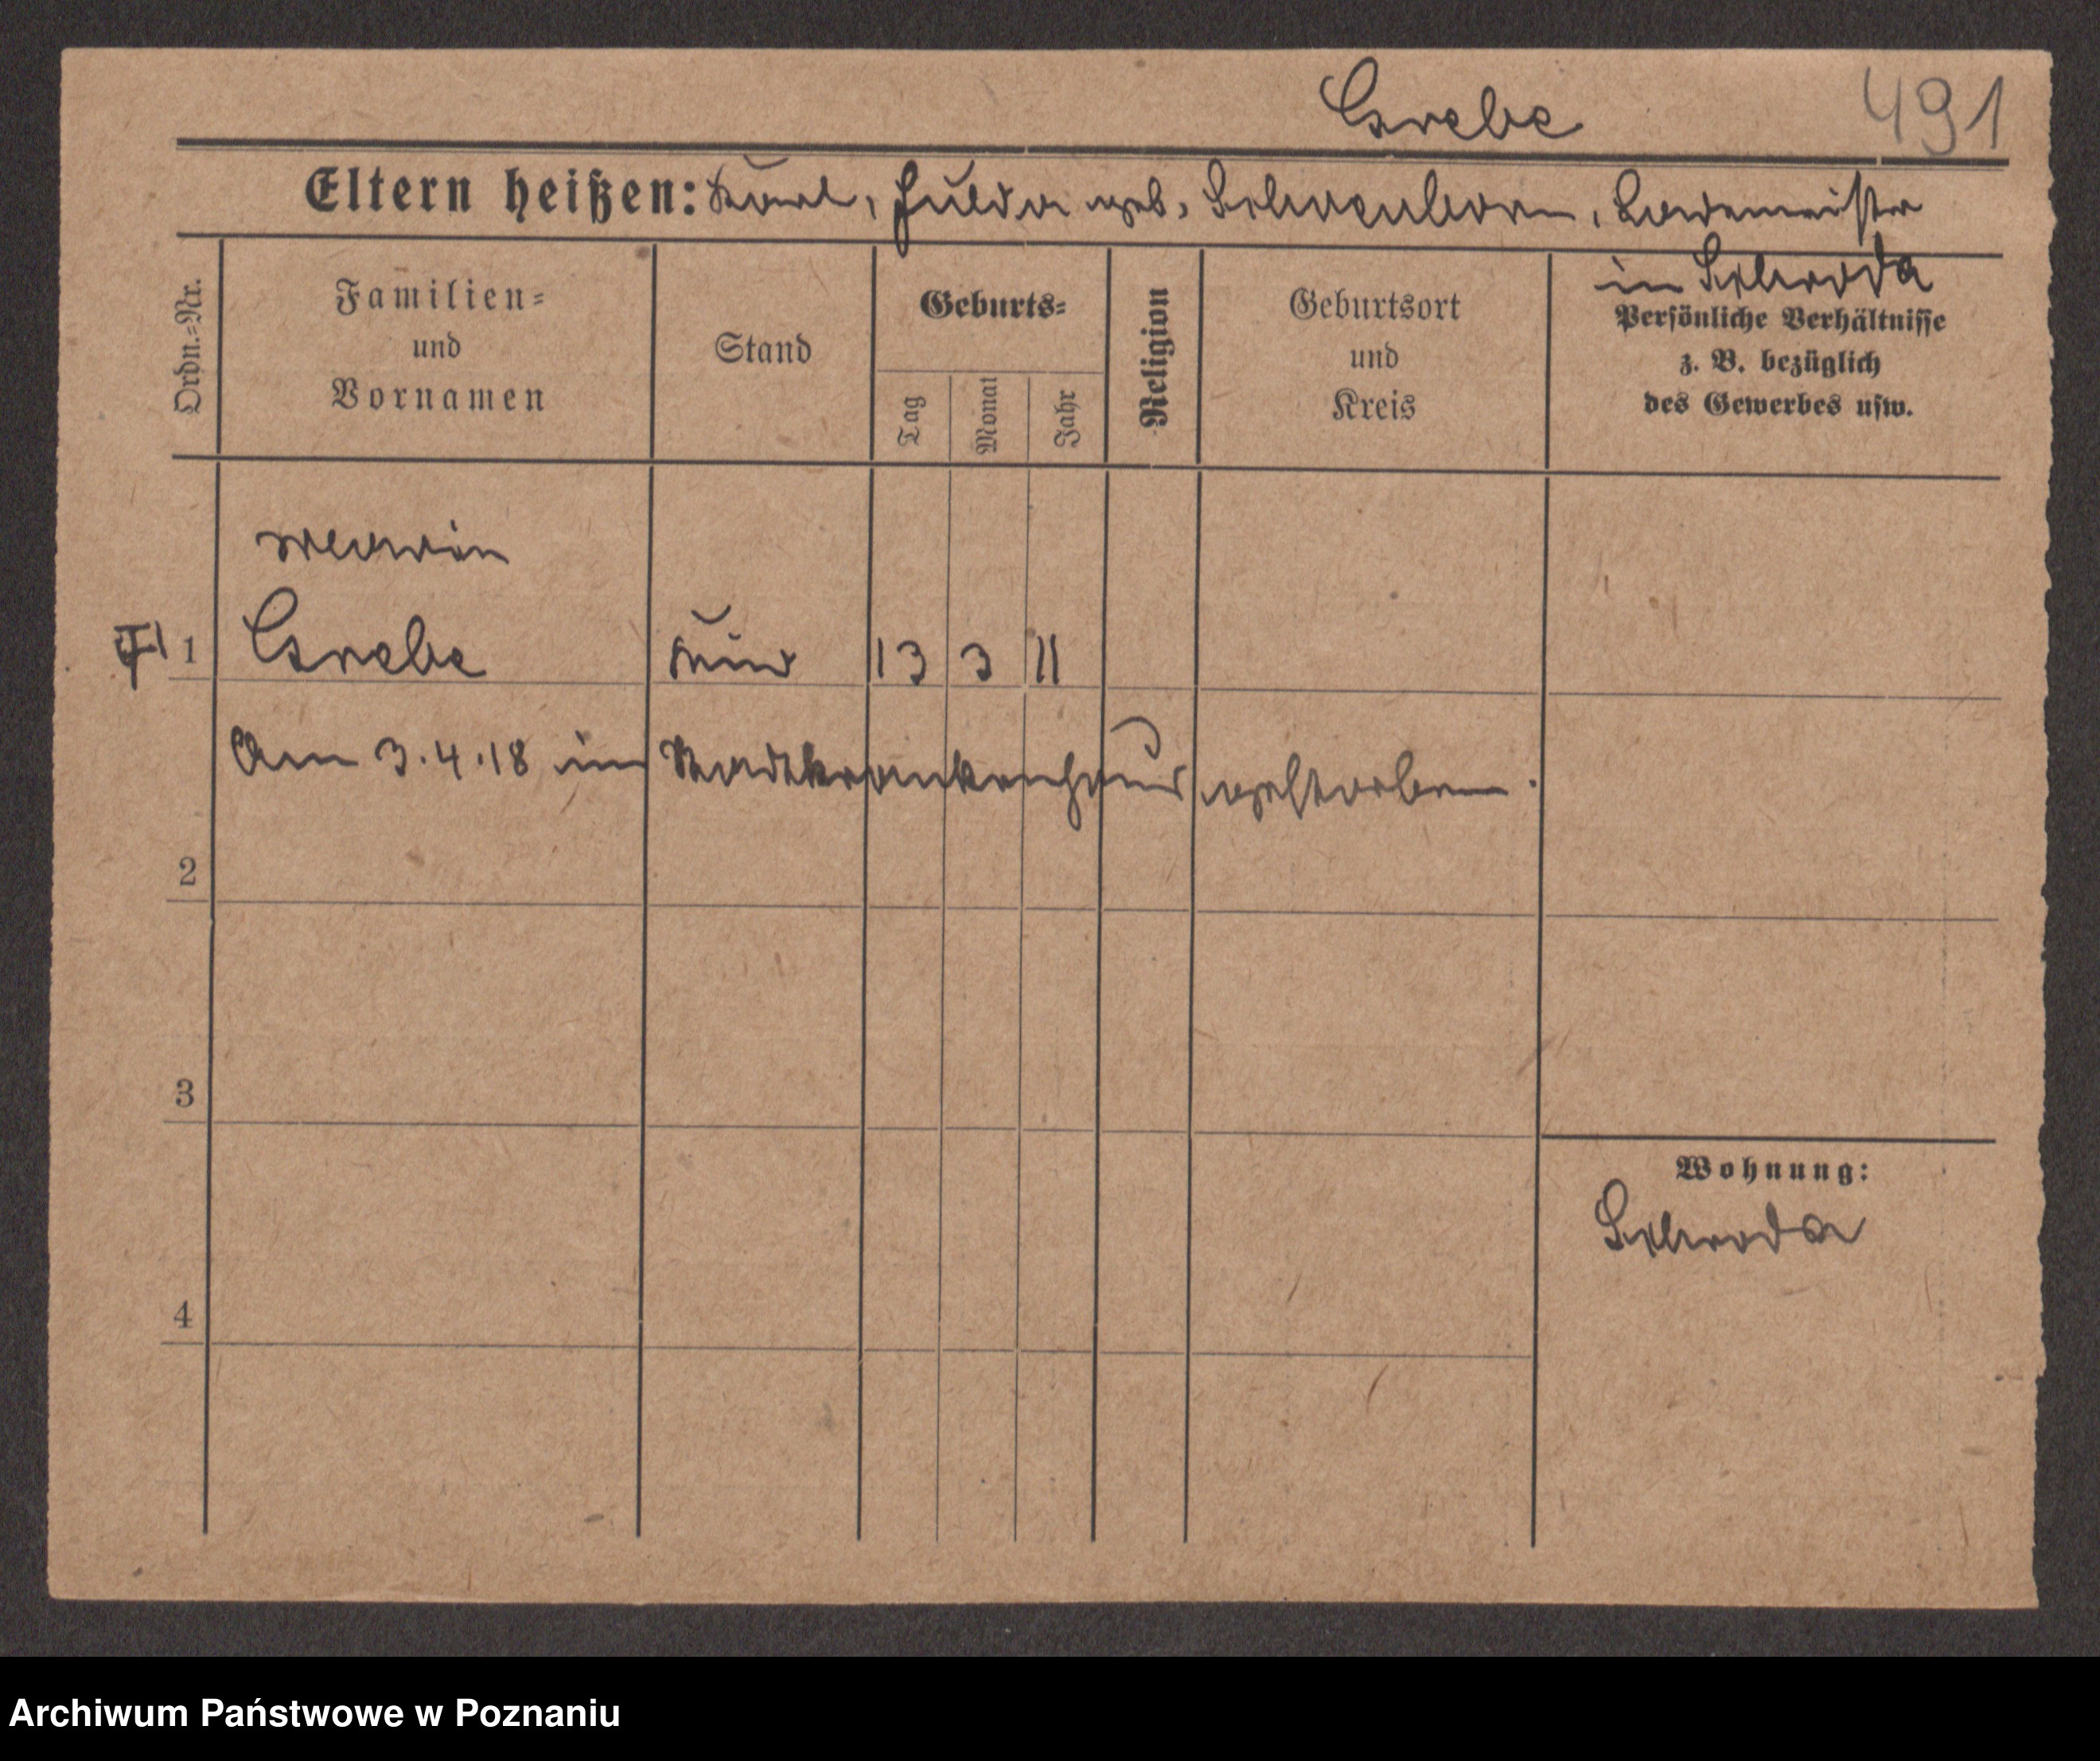 Grebe 491
Eltern heißen: Karl, Hulda geb. Schoenborn, Lademeister
in Schroda
Ordn.-Nr.
Familien-
und
Vornamen
Stand
Geburts-
Tag
Monat
Jahr
Religion
Geburtsort
und
Kreis
Persönliche Verhältnisse
z. B. bezüglich
des Gewerbes usw.
1
Grebe Kind 13 3 11
Am 3.4.18 im Stadtkrankenhaus gestorben.
2
3
Wohnung:
Schroda
4
Archiwum Państwowe w Poznaniu